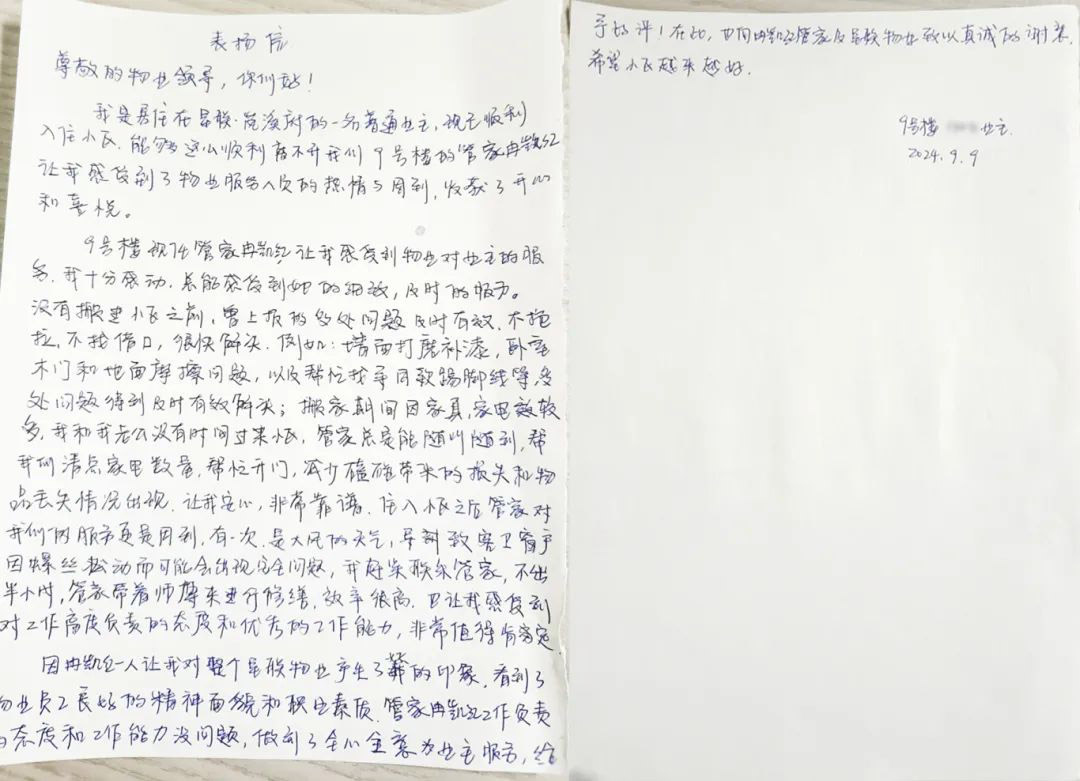 表扬信
尊敬的物业领导，你们好！
我是居住在昱联·苑溪府的一名普通业主，现已顺利
入住小区，能够这么顺利离不开我们9号楼的管家冉凯红
让我感受到了物业服务人员的热情与周到，收获了开心
和喜悦。
9号楼现任管家冉凯红让我感受到物业对业主的服
务，我十分感动，总能感受到她的细致，及时的服务。
没有搬进小区之前，曾上报的多处问题及时有效，不拖
拉，不找借口，很快解决。例如：墙面打磨补漆，卧室
木门和地面摩擦问题，以及帮忙找寻同款踢脚线等，多
处问题得到及时有效解决；搬家期间因家具，家电数较
多，我和我老公没有时间过来小区，管家总是能随叫随到，帮
我们清点家电数量，帮忙开门，减少磕碰带来的损失和物
品丢失情况出现，让我安心，非常靠谱。住入小区之后管家对
我们的服务更是周到，有一次，是大风的天气，导致客卫窗户
因螺丝松动而可能会出现安全问题，我赶紧联系管家，不出
半小时，管家带着师傅来进行修缮，效率很高，也让我感受到
对工作高度负责的态度和优秀的工作能力，非常值得肯定
因冉凯红一人让我对整个昱联物业产生了的印象，看到了
物业员工良好的精神面貌和职业素质，管家冉凯红工作负责
的态度和工作能力没问题，做到了全心全意为业主服务，给
予好评！在此，也向冉凯红管家及昱联物业致以真诚的谢意，
希望小区越来越好。
9号楼 业主
2024.9.9